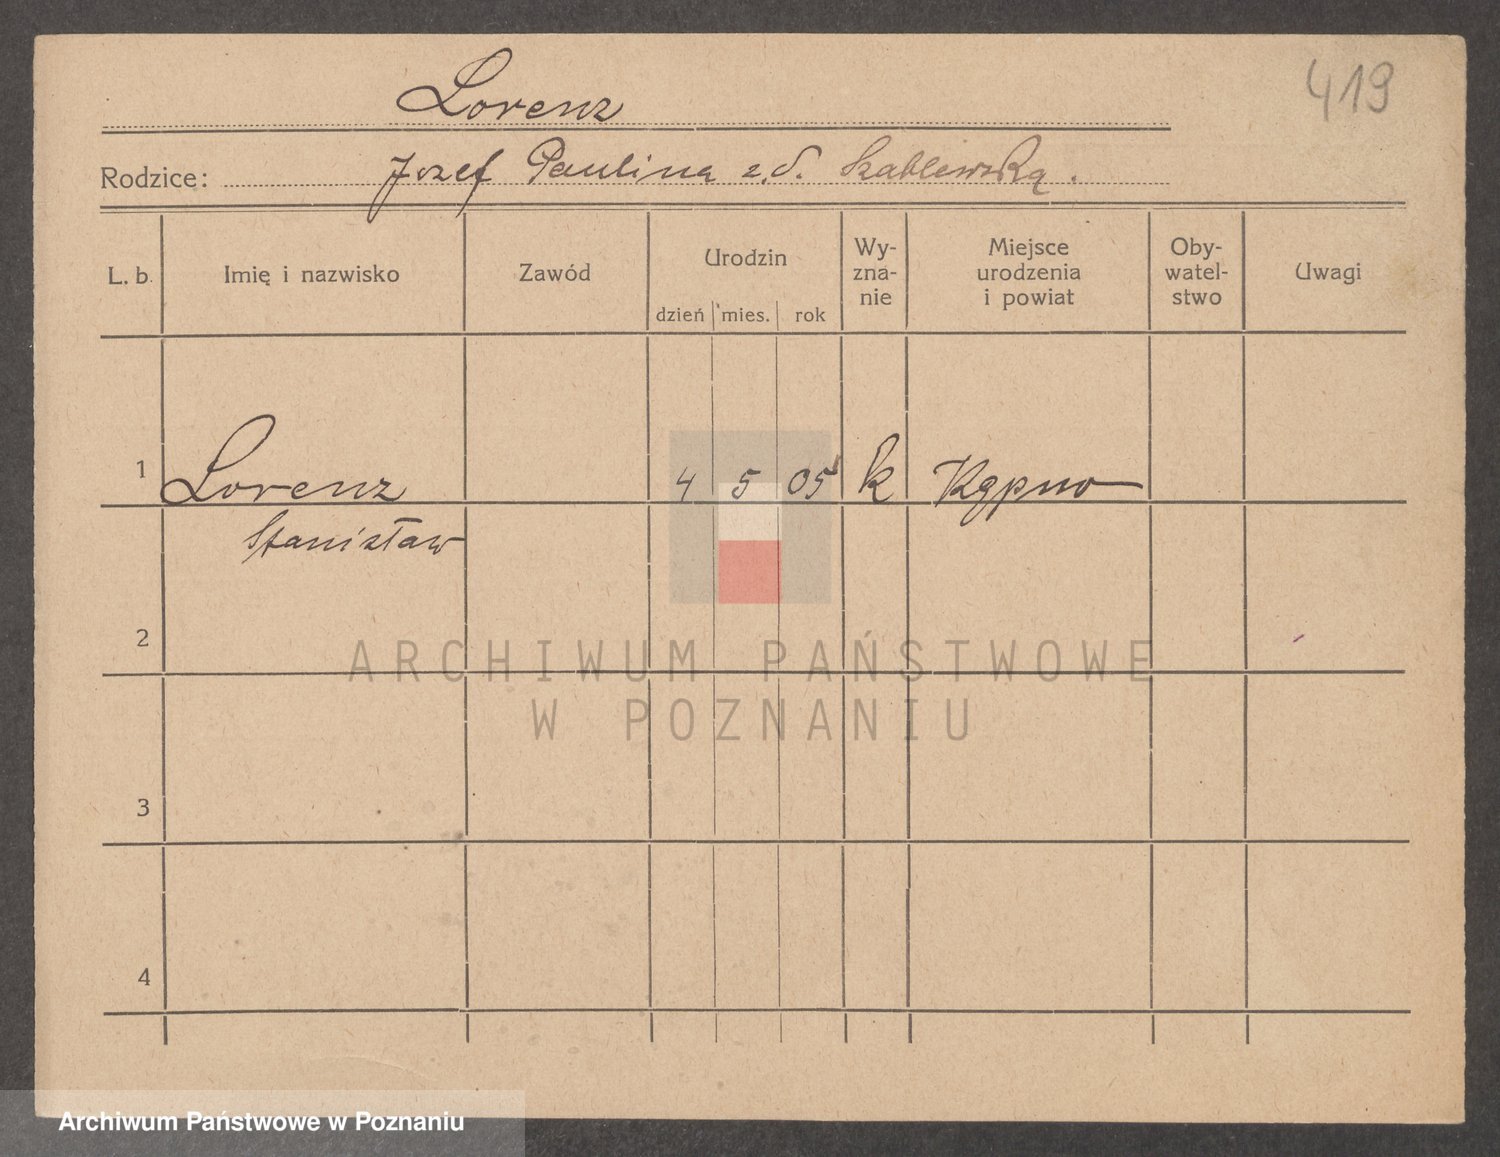 Lorenz
419
Rodzice: Jozef Paulina z. d. Szablewską.
L. b. Imię i nazwisko Zawód Urodzin dzień mies. rok Wy-zna-nie Miejsce urodzenia i powiat Oby-watel-stwo Uwagi
1 Lorenz 4 5 05 k Kępno
Stanisław
2
ARCHIWUM PAŃSTWOWE
W POZNANIU
3
4
Archiwum Państwowe w Poznaniu